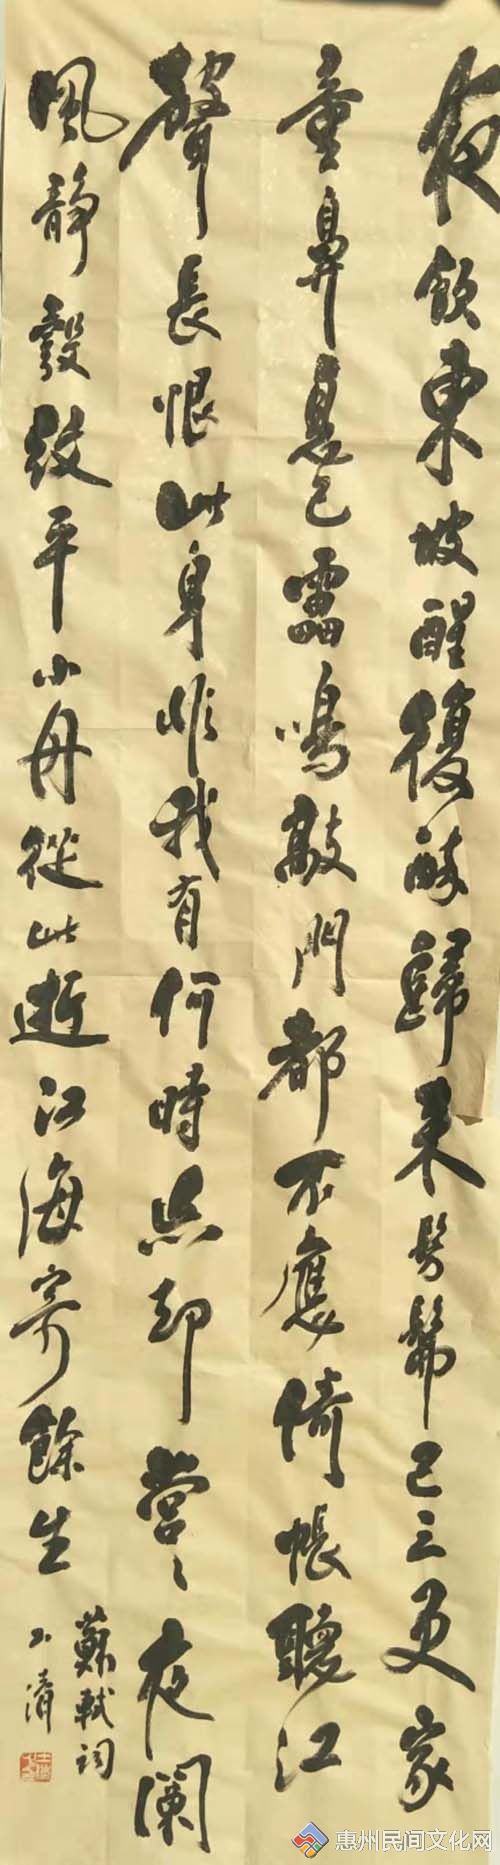 夜飲東坡醒復醉歸来髣髴已三更家
童鼻息已雷鳴敲門都不應倚帳聽江
聲長恨此身非我有何時忘却營々夜闌
風静縠紋平小舟從此逝江海寄餘生
蘇軾词
惠州民间文化网